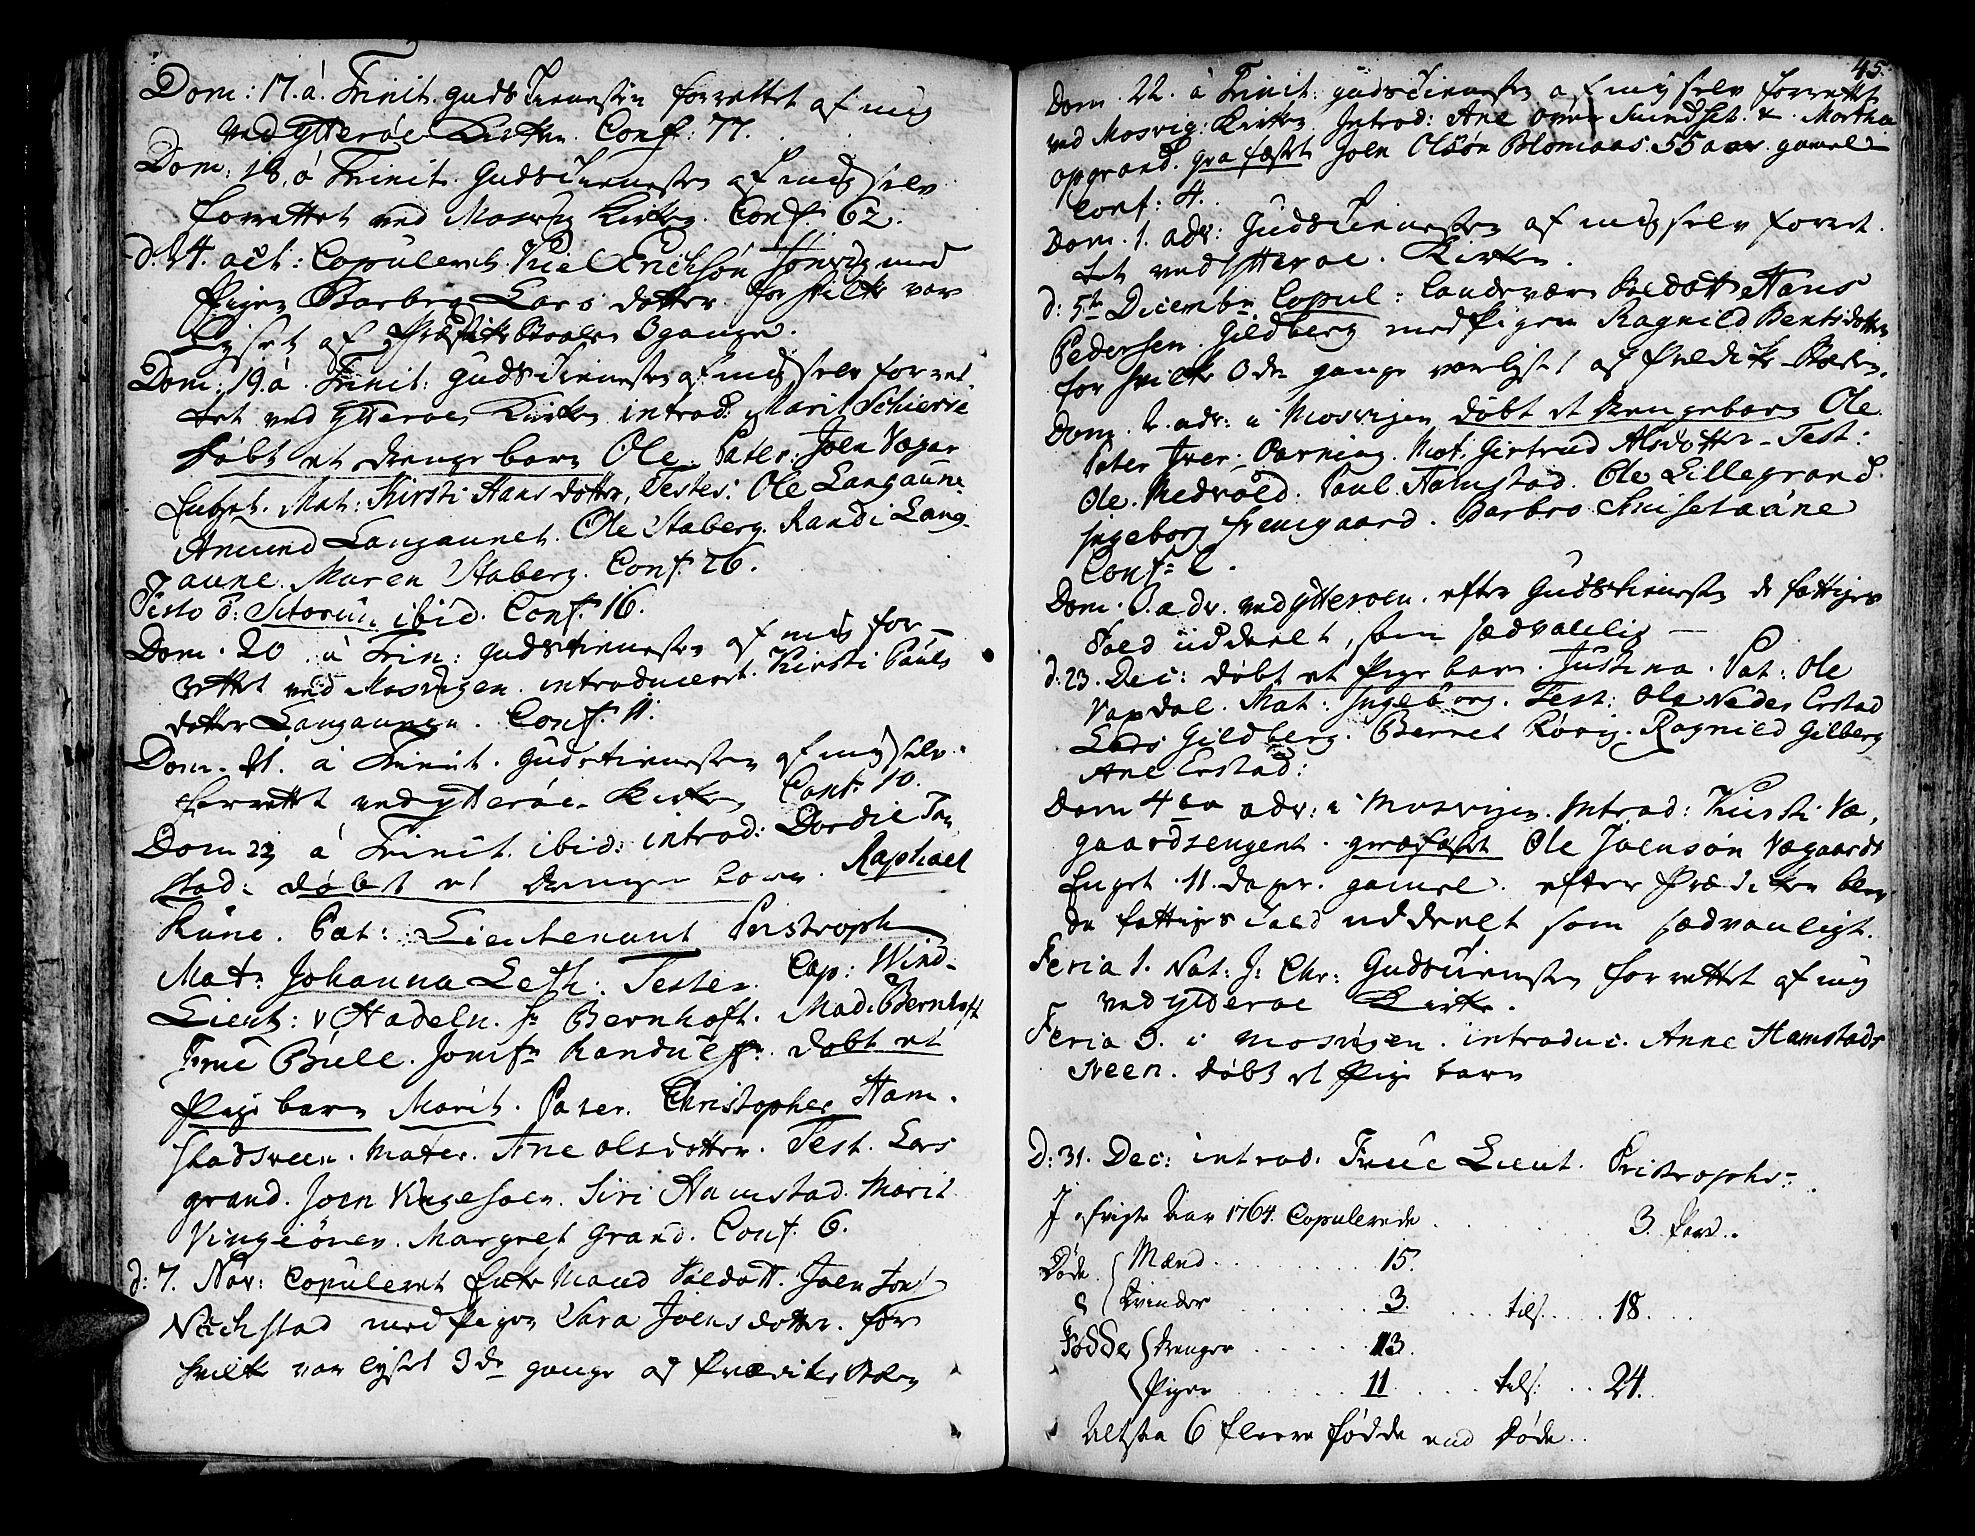 Dom: 17. á. Trinit. Guds Tienesten forrettet af mig
ved Ytterøe Kirken. Conf: 77.
Dom: 18. á Trinit. Guds Tienesten af mig selv
forrettet ved Mosvig Kirke. Conf. 62.
d. 14. oct: Copuleret Kiel Erichsøn med
Pigen Barbro Lars dotter for hvilke var
Lyset af Prædike Stoelen 3 gange.
Dom: 19. á. Trinit: Guds Tienesten af mig selv forret-
tet ved Ytterøe Kirken introd: Marit Schierve
døbt et drenge barn Ole. Pater: Joen Vægar
Enget. Mat: Kirsti Hans dotter, Testes: Ole Langaune
Amund Langaunet. Ole Staberg. Randi Lang-
aune. Maren Staberg. Conf. 26.
Festo O: Sctorum ibid. Conf. 16.
Dom. 20. á Trin: Guds tienesten af mig for-
rettet ved Mosvigen. introduceret Kirsti Pauls
dotter Langaunen. Conf. 11.
Dom. 21. á Trinit. Gudstienesten af mig selv
forrettet ved Ytterøe Kirken Conf. 10.
Dom 22 á Trinit. ibid: introd: Dordie
stad: døbt et Drenge barn. Raphael
Rune. Pat: Lieutenant Peistroph
Mat: Johanna Leth. Testes. Cap: Wind-
Lieut: v Hadeln. Hr Bernhoft. Mad. Bernhoft
Frue Bull. Jomfr Randulf. døbt et
Pige barn Marit. Pater. Christopher Ham-
stadsveen. Mater. Ane olsdotter. Test. Lars
grand. Joen Siri Hamstad. Marit
Vingiønes. Margret Grand. Conf. 6.
d: 7. Nov: Copuleret Enke Mand Soldatt. Joen
Nøchstad med Pigen Sara Joensdotter. for
hvilke var lyset 3de gange af Prædike Stolen
45.
Dom. 22. á Trinit: gudstienesten af mig selv forrettet
ved Mosvig: Kirke. Introd: Ane øvre Sundset. & Martha
opgrand. graafæstet Joen Olsøn Blomaas 55 aar gamel
Conf: 4.
Dom. 1. adv: Gudstienesten af mig selv forret-
tet ved Ytterøe. Kirken.
d: 5te Decembr Copul: Landeværn Soldatt Hans
Pedersen. Gildberg med Pigen Ragnild Bentsdotter
for hvilke 3de gange var lyst af Prædike Stolen.
Dom. 2. adv: i Mosvigen døbt et drengebarn Ole
Pater Iver. Parning. Mot. Giertrud Alsdotter - Test:
Ole. Nedvold. Paul Hamstad. Ole Lillegrand.
Ingeborg Fremgaard. Barbro Aune
Conf: 2.
Dom. 3. adv. ved Ytterøen. efter Gudstienesten de fattiges
Told uddeelt, som sædvanlig
d: 23. Dec: døbt et Pige barn. Justina. Pat: Ole
Vapdal. Mat: Ingeborg. Test: Ole Neder Erstad
Lars Gildberg. Bernet Rørig. Ragnild Gilberg
Ane Erstad:
Dom 4ta adv: i Mosvigen. Introd: Kirsti Væ-
gaardsenget. graafæstet Ole Joensøn Vægaards
Enget. 11. dager. gamel. efter Prædiken blev
de fattiges Told uddeelt som sædvanligt.
Feria 1. Nat: J: Chr: Gudstienesten forrettet af mig
ved Ytterøe Kirke.
Feria 3. i Mosvigen. introduc. Anne Hamstads
Sveen. døbt et Pige barn
D: 31. Dec: introd. Frue Lieut. Pristrophs.
I afvigte Aar 1764. Copulerede . . . . 3. Par..
Døde { Mænd . . . . . 15.
{ Qvinder . . . . . 3. . . . tils. . . . 18. . .
Fødde { Drenger . . . . . 13.
{ Piger . . . . . 11. . . . tils: . . 24.
Altsaa 6 fleere fødde end Døde.